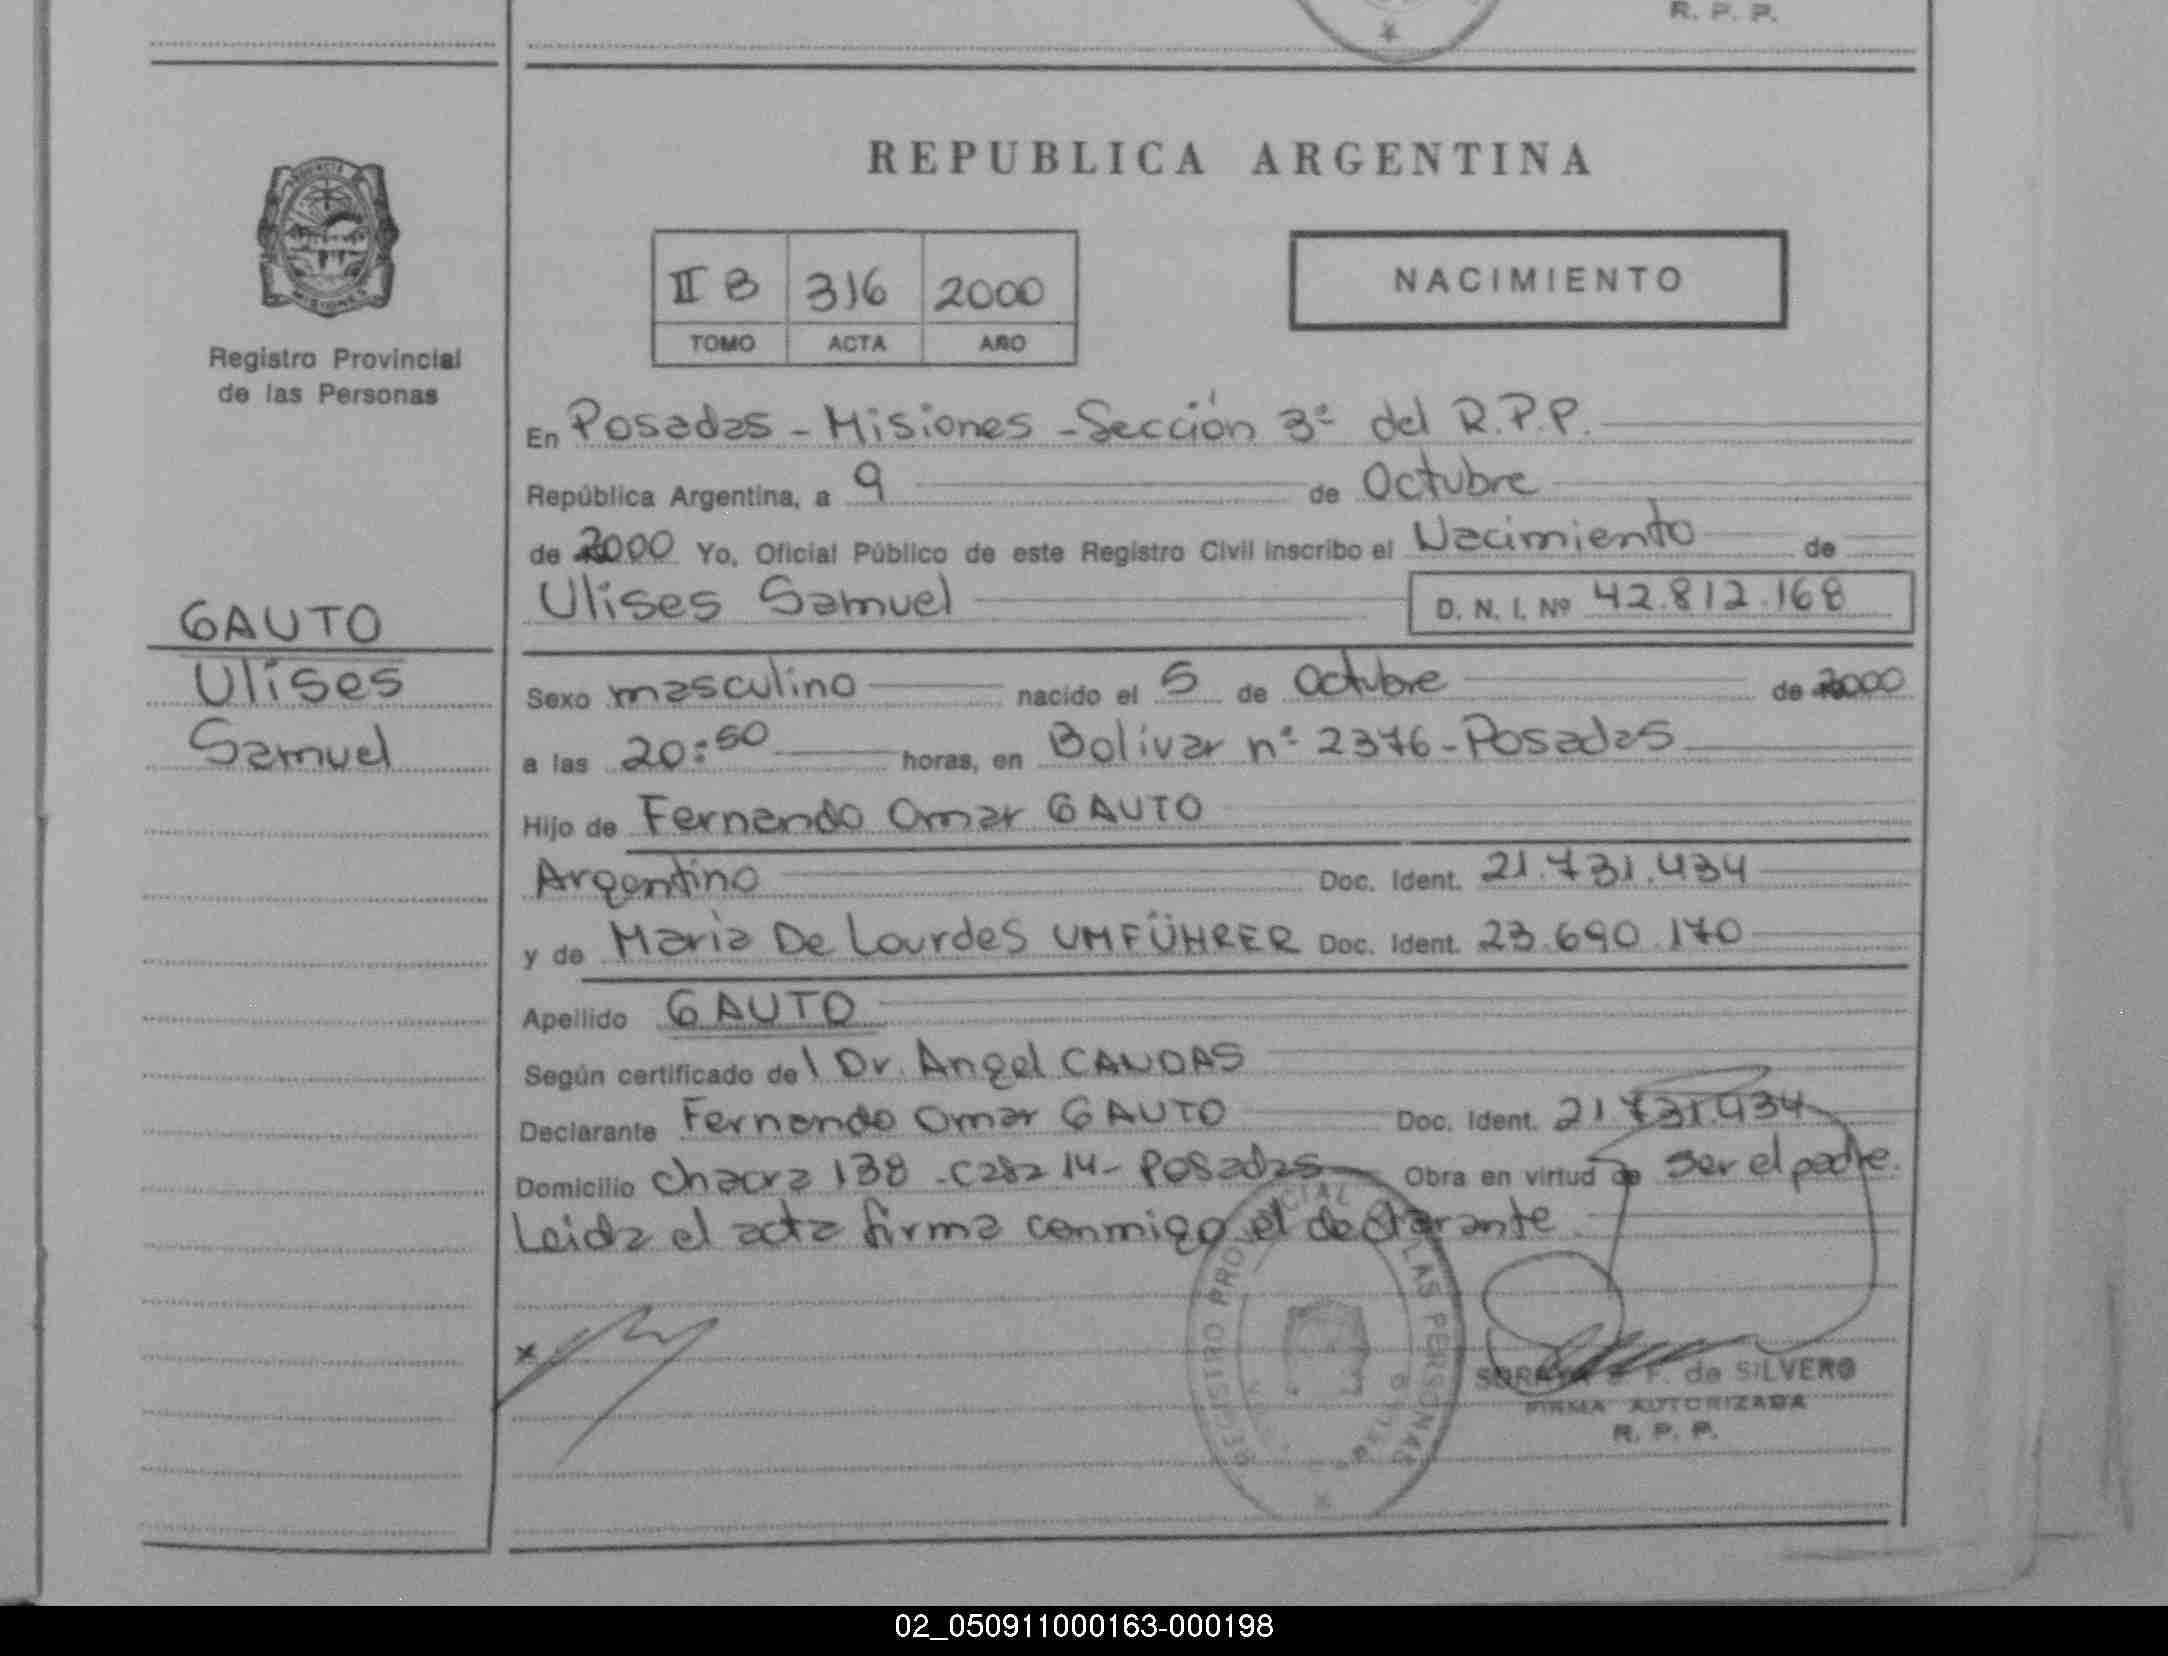 R. P. P.
REPUBLICA ARGENTINA
II B 316 2000
TOMO ACTA AÑO
NACIMIENTO
PROVINCIA DE
MISIONES
Registro Provincial
de las Personas
GAUTO
Ulises
Samuel
En Posadas - Misiones - Sección 3ª del R.P.P.
República Argentina, a 9 de Octubre
de 2000 Yo, Oficial Público de este Registro Civil inscribo el Nacimiento de
Ulises Samuel D. N. I. Nº 42.812.168
Sexo masculino nacido el 5 de Octubre de 2000
a las 20:50 horas, en Bolivar nº 2376 - Posadas
Hijo de Fernando Omar GAUTO
Argentino Doc. Ident. 21.731.434
y de Maria De Lourdes UMFÜHRER Doc. Ident. 23.690.170
Apellido GAUTO
Según certificado del Dr. Angel CANDAS
Declarante Fernando Omar GAUTO Doc. Ident. 21.731.434
Domicilio chacra 138 - casa 14 - Posadas Obra en virtud de ser el padre.
Leida el acta firma conmigo el declarante
x
REGISTRO PROVINCIAL LAS PERSONAS
F. de SILVERO
FIRMA AUTORIZADA
R. P. P.
02_050911000163-000198